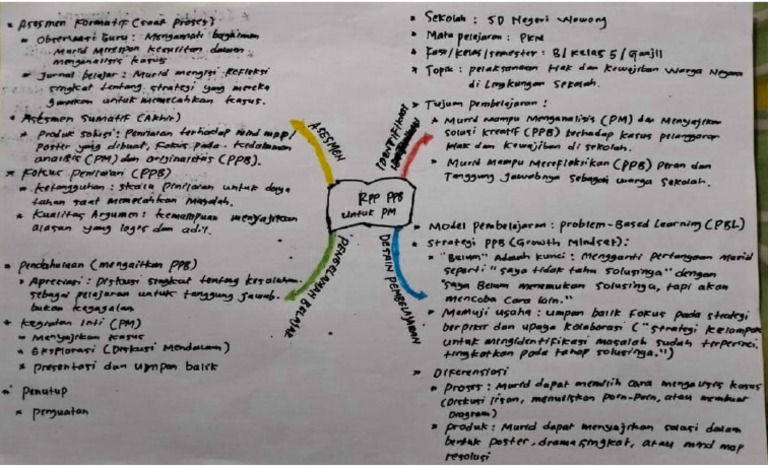 Asesmen Formatif (Saat Proses):
Observasi Guru: Mengamati bagaimana
Murid Merespon Kesulitan dalam
menganalisis kasus
Jurnal belajar: Murid mengisi refleksi
singkat tentang strategi yang mereka
gunakan untuk memecahkan kasus.
Asesmen Sumatif (Akhir)
Produk solusi: Penilaian terhadap mind map/
Poster yang dibuat, Fokus pada kedalaman
analisis (PM) dan originalitas (PPB).
Fokus Penilaian (PPB)
Ketangguhan: skala penilaian untuk daya
tahan saat memecahkan Masalah.
Kualitas Argumen: kemampuan menyajikan
alasan yang logis dan adil.
ASESMEN
Sekolah: SD Negeri Wawong
Mata pelajaran: PKN
Fase/kelas/semester: B/Kelas 5/Ganjil
Topik: pelaksanaan Hak dan Kewajiban Warga Negara
di Lingkungan Sekolah.
Tujuan Pembelajaran:
Murid Mampu Menganalisis (PM) dan Menyajikan
solusi kreatif (PPB) terhadap kasus pelanggaran
Hak dan Kewajiban di sekolah.
Murid Mampu Merefleksikan (PPB) Peran dan
Tanggung Jawabnya sebagai warga Sekolah.
IDENTIFIKASI
RPP PPB
untuk PM
Pendahuluan (mengaitkan PPB)
Apersepsi: Diskusi singkat tentang kesalahan
sebagai pelajaran untuk tanggung jawab.
bukan kegagalan
Kegiatan Inti (PM)
Menyajikan kasus
Eksplorasi (Diskusi Mendalam)
presentasi dan umpan balik
Penutup
penguatan
PENGALAMAN BELAJAR
Model Pembelajaran: problem-Based Learning (PBL)
Strategi PPB (Growth Mindset):
"Belum" Adalah Kunci: Mengganti pertanyaan Murid
seperti "saya tidak tahu solusinya" dengan
"Saya Belum menemukan solusinya, tapi akan
mencoba cara lain."
Memuji usaha: umpan balik Fokus pada strategi
berpikir dan upaya kolaborasi ("strategi kelompok
untuk mengidentifikasi masalah sudah terperinci,
tingkatkan pada tahap solusinya.")
Diferensiasi
Proses: Murid dapat memilih cara menganalisis kasus
(Diskusi lisan, menuliskan poin-poin, atau membuat
Diagram)
Produk: Murid dapat menyajikan solusi dalam
bentuk poster, drama singkat, atau mind map
resolusi
DESAIN PEMBELAJARAN